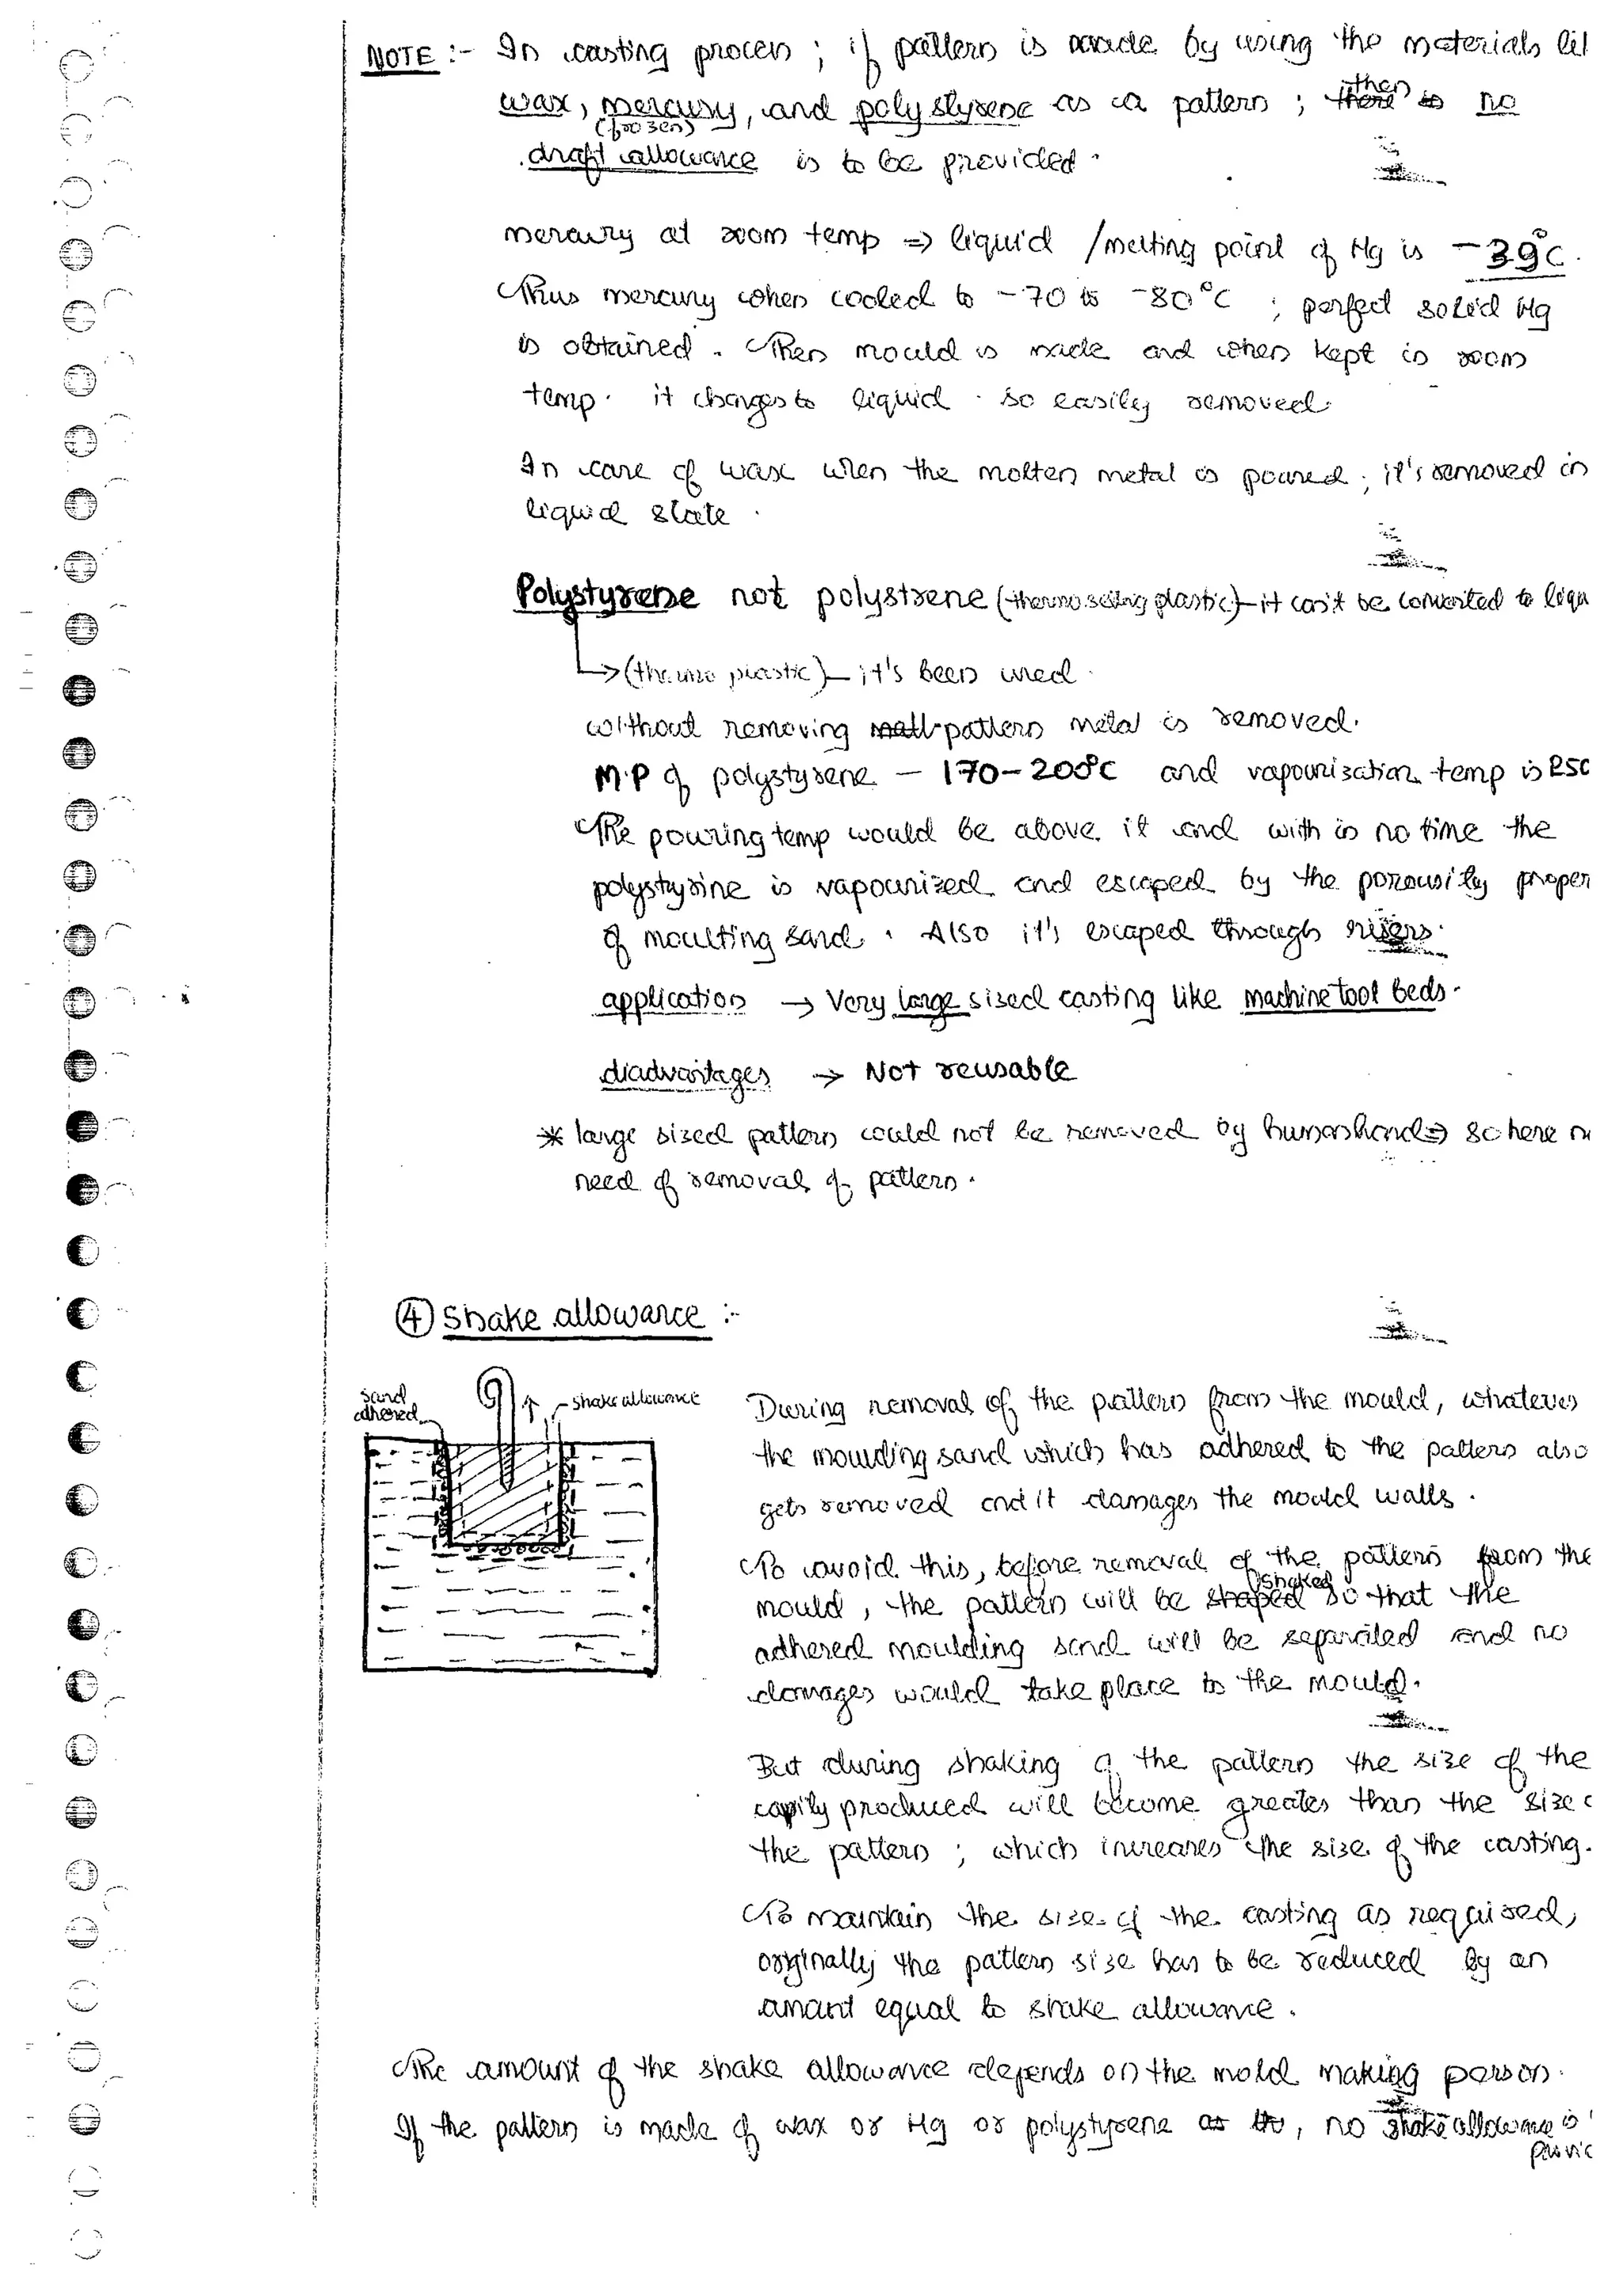 NOTE :- In casting process ; if pattern is made by using the materials
wax, mercury, and polystyrene as a pattern ; then no
(frozen)
draft allowance is to be provided.
mercury at room temp => liquid / melting point of Hg is -39°C.
Thus mercury when cooled to -70 to -80°C ; perfect solid Hg
is obtained. Then mould is made and when kept in room
temp. it changes to liquid. so easily removed.
In case of wax when the molten metal is poured ; it's removed in
liquid state.
Polystyrene not polystrene (thermosetting plastic) - it can't be converted to
→ (thermo plastic) - it's been used.
without removing pattern metal is removed.
M.P of polystyrene - 170-200°C and vapourization temp is 250
The pouring temp would be above it and with in no time the
polystyrine is vapourized and escaped by the porousity proper
of moulting sand. Also it's escaped through risers.
application → Very large sised casting like machine tool beds.
disadvantages → Not reusable
* large sized pattern could not be removed by human hands => so here
need of removal of pattern.
④ Shake allowance :-
sand
adhered
shake allowance
During removal of the pattern from the mould, whatever
the moulding sand which has adhered to the pattern also
gets removed and it damages the mould walls.
To avoid this, before removal of the pattern from the
mould, the pattern will be shaked so that the
adhered moulding sand will be separated and no
damages would take place to the mould.
But during shaking of the pattern the size of the
cavity produced will become greater than the size
the pattern ; which increases the size of the casting.
To maintain the size of the casting as required,
originally the pattern size has to be reduced by an
amount equal to shake allowance.
The amount of the shake allowance depends on the mold making person.
If the pattern is made of wax or Hg or polystyrene, no shake allowance is